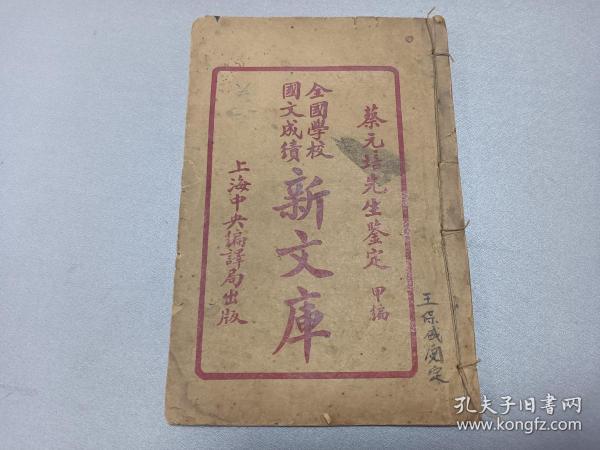 蔡元培先生鉴定 甲编
全國學校
國文成績
新文庫
上海中央编譯局出版
王保成
孔夫子旧书网
www.kongfz.com